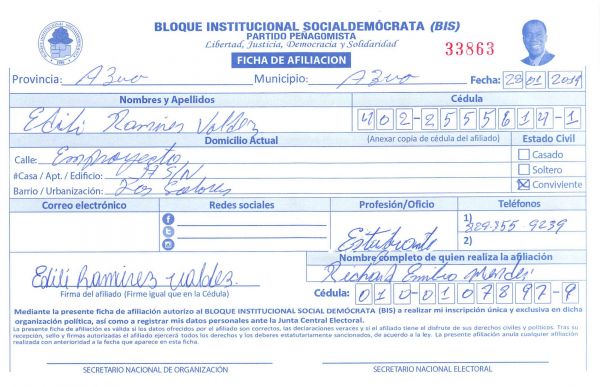 BLOQUE INSTITUCIONAL SOCIALDEMÓCRATA (BIS)
PARTIDO PEÑAGOMISTA
Libertad, Justicia, Democracia y Solidaridad
33863
FICHA DE AFILIACION
Provincia: Azua Municipio: Azua Fecha: 23 01 2019
Nombres y Apellidos Cédula
Edili Ramires Valdez 402-2555614-1
Domicilio Actual (Anexar copia de cédula del afiliado) Estado Civil
Calle: Emproyecto Casado
#Casa / Apt. / Edificio: # S/N Soltero
Barrio / Urbanización: Los Solares Conviviente
Correo electrónico Redes sociales Profesión/Oficio Teléfonos
1) 829-755 9239
Estudiante 2)
Nombre completo de quien realiza la afiliación
Edili Ramirez Valdez. Richard Emilio Mendez
Firma del afiliado (Firme igual que en la Cédula) Cédula: 010-0107897-9
Mediante la presente ficha de afiliación autorizo al BLOQUE INSTITUCIONAL SOCIAL DEMÓCRATA (BIS) a realizar mi inscripción única y exclusiva en dicha
organización política, así como a registrar mis datos personales ante la Junta Central Electoral.
La presente ficha de afiliación es válida si los datos ofrecidos por el afiliado son correctos, las declaraciones veraces y si el afiliado tiene el disfrute de sus derechos civiles y políticos. Tras su
recepción, sello y firmas autorizadas el afiliado ejercerá todos los derechos y los deberes estatutariamente consagrados, de acuerdo a la ley. La presente afiliación sanciona, anula cualquier afiliación
realizada con anterioridad a la fecha que aparece en esta ficha.
SECRETARIO NACIONAL DE ORGANIZACIÓN SECRETARIO NACIONAL ELECTORAL